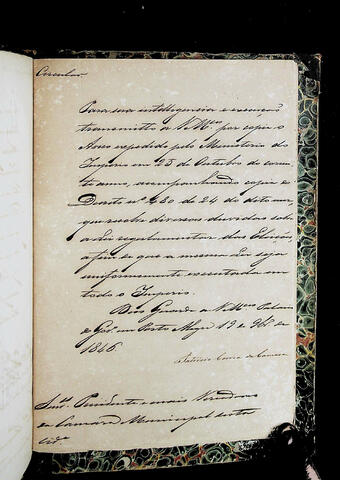 Circular
Para sua intelligencia e execução
transmitto a V. M.ces por copia o
Aviso expedido pelo Ministerio do
Imperio em 25 de Outubro do corren
te anno, acompanhando copia do
Decreto nº 480 de 24 do dito mez
que resolve diversas duvidas sobre
a Lei regulamentar das Eleições,
a fim de que a mesma Lei seja
uniformemente executada em
todo o Imperio.
Deos Guarde a V. M.ces Palacio
do Gov.º em Porto Alegre 19 de
1846.
Patricio Correa da Camara
Snr.es Presidente e mais Vereadores
da Camara Municipal desta
Cid.e